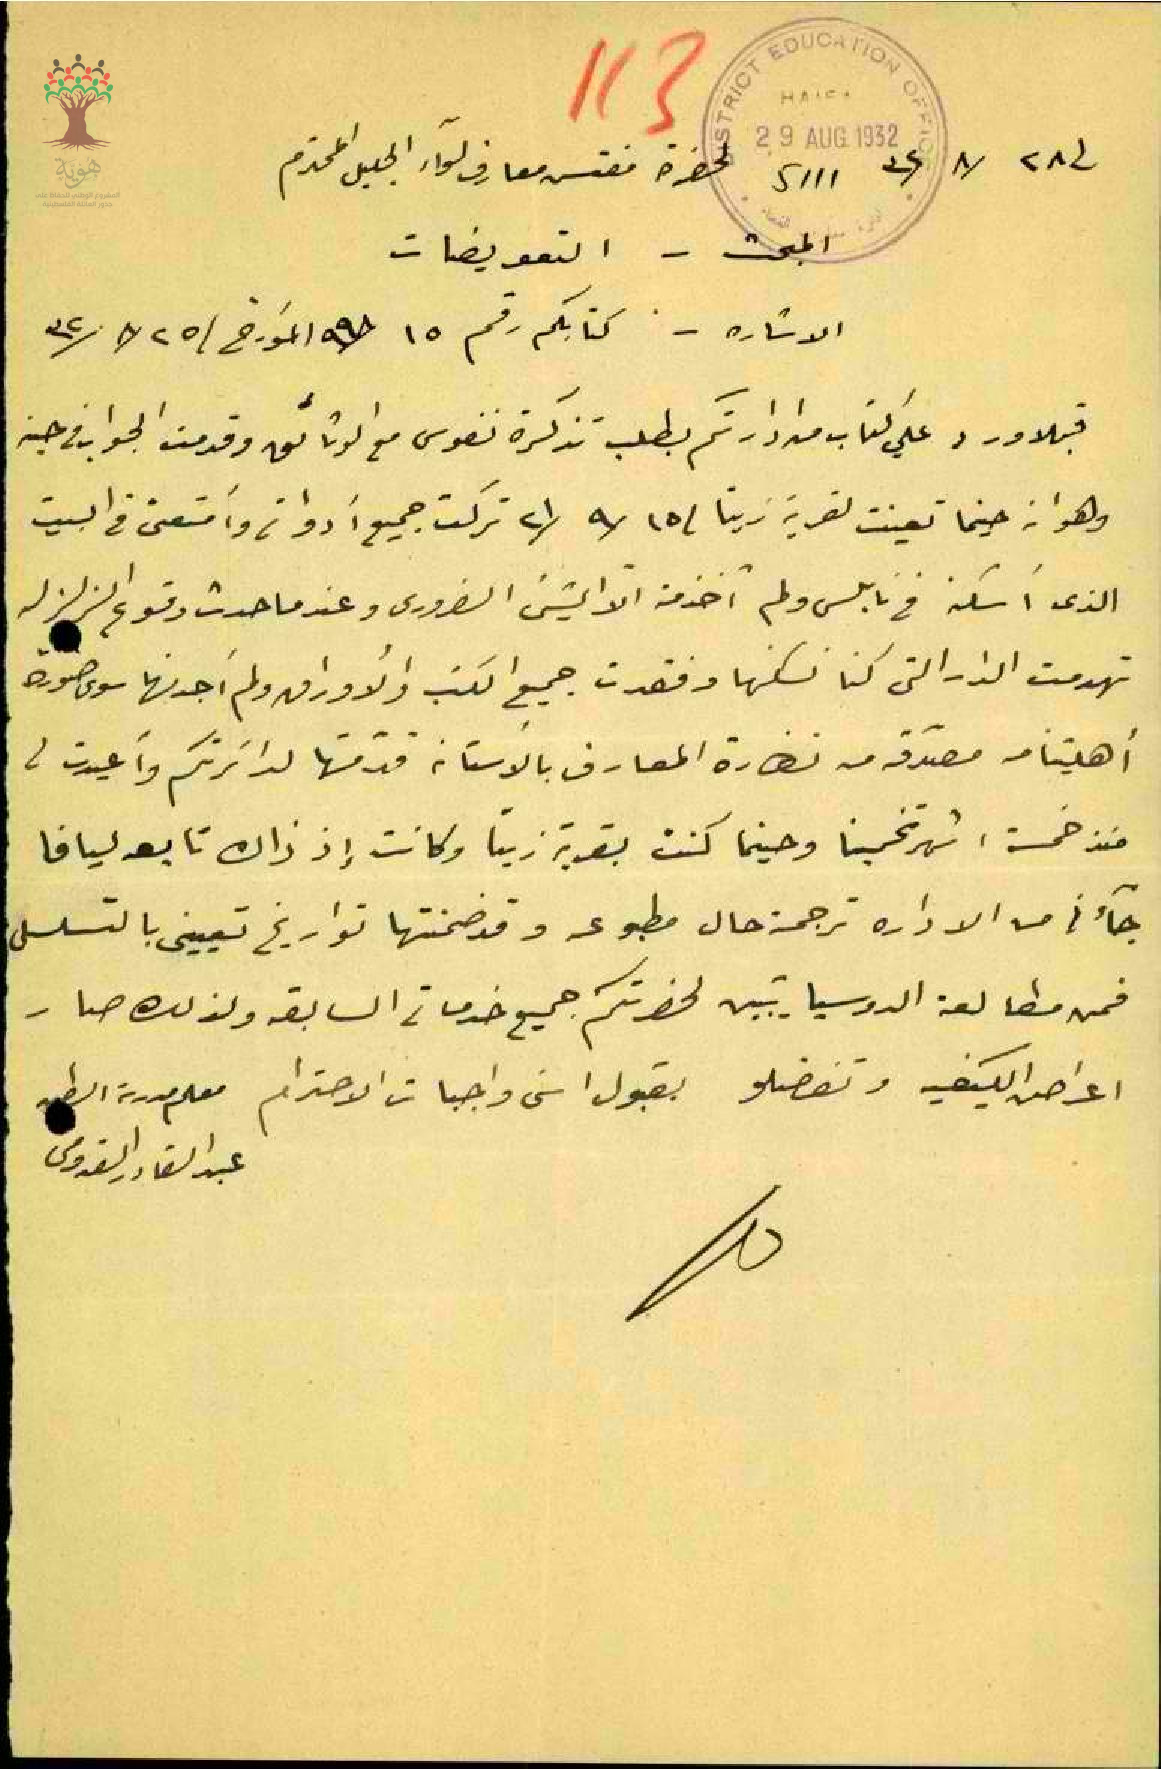 113
DISTRICT EDUCATION OFFICE
HAIFA
29 AUG 1932
هوية
في ٢٨/ ٨/ ٣٢ لحضرة مفتش معارف لوآء الجليل المحترم
5111
المبحث - التعويضات
الاشاره - كتابكم رقم ١٥ المؤرخ في ٢٥/ ٨/ ٣٢
قبلا ورد علي كتاب من ادارتكم بطلب تذكرة نفوس مع الوثائق وقدمت الجواب في حينه
وهو انه حينما تعينت لقرية زيتا في ١٥/ ٩/ ٢١ تركت جميع أدواتي وأمتعتي في البيت
الذى أسكنه في نابلس ولم آخذ منه الا الشئ الضرورى وعندما حدث وقوع الزلزله
تهدمت الدار التى كنا نسكنها وفقدت جميع الكتب والأوراق ولم أجد منها سوى صورة
أهليتنامه مصدقه من نظارة المعارف بالأستانه قدمتها لدائرتكم وأعيدت لى
منذ خمسة اشهر تخمينا وحينما كنت بقرية زيتا وكانت إذ ذاك تابعه ليافا
جآءنى من الاداره ترجمة حال مطبوعه وقد ضمنتها تواريخ تعيينى بالتسلسل
فمن مطالعة الدوسيا يتبين لحضرتكم جميع خدماتى السابقه ولذلك صار -
اعراض الكيفيه وتفضلو بقبول اسنى واجبات الاحترام معلم مدرسة
عبد القادر القدومى